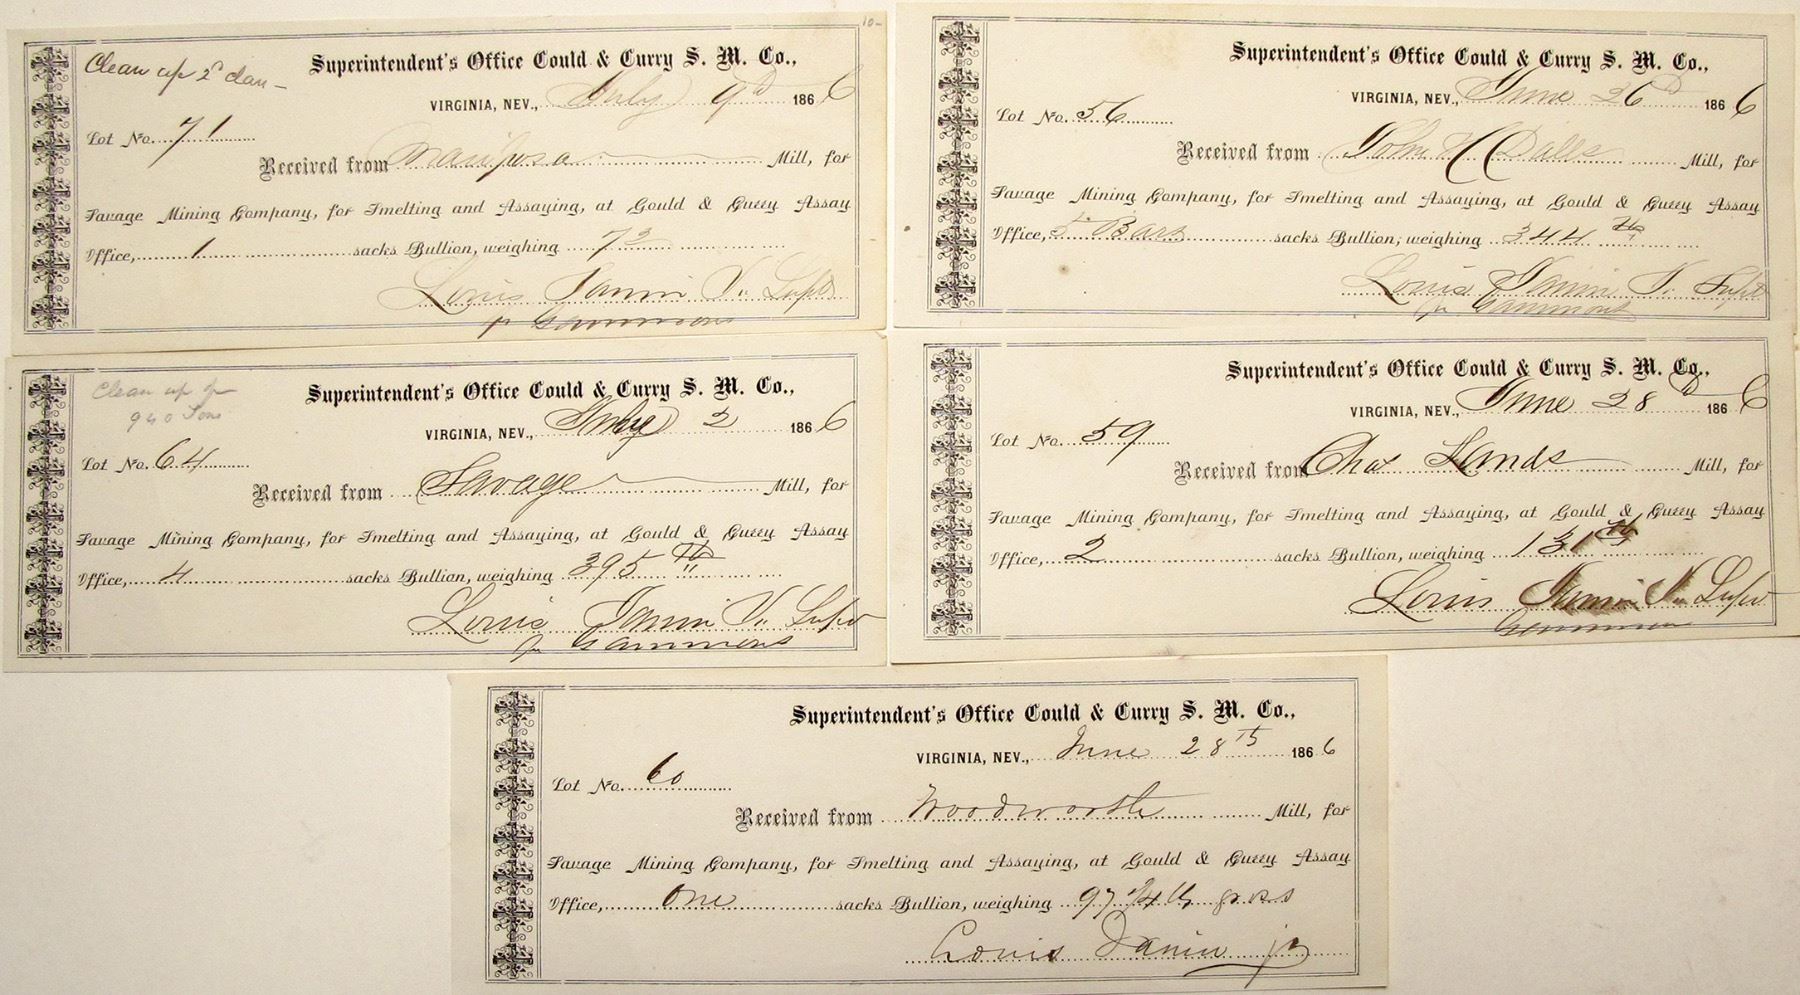 10-
Clean up 2d clan -
Superintendent's Office Gould & Curry S. M. Co.,
VIRGINIA, NEV., July 9th 1866
Lot No. 71
Received from Mariposa Mill, for
Savage Mining Company, for Smelting and Assaying, at Gould & Curry Assay
Office, 1 sacks Bullion, weighing 73
Louis Janin Jr Supt
pr Gammons
Superintendent's Office Gould & Curry S. M. Co.,
VIRGINIA, NEV., June 26th 1866
Lot No. 56
Received from John H Dalls Mill, for
Savage Mining Company, for Smelting and Assaying, at Gould & Curry Assay
Office, 5 Bars sacks Bullion, weighing 344 lb
Louis Janin Jr Supt
pr Gammons
Clean up of
940 Tons
Superintendent's Office Gould & Curry S. M. Co.,
VIRGINIA, NEV., July 2 1866
Lot No. 64
Received from Savage Mill, for
Savage Mining Company, for Smelting and Assaying, at Gould & Curry Assay
Office, 4 sacks Bullion, weighing 395 lb
Louis Janin Jr Supt
pr Gammons
Superintendent's Office Gould & Curry S. M. Co.,
VIRGINIA, NEV., June 28th 1866
Lot No. 59
Received from Chas Lands Mill, for
Savage Mining Company, for Smelting and Assaying, at Gould & Curry Assay
Office, 2 sacks Bullion, weighing 131 lb
Louis Janin Jr Supt
Gammons
Superintendent's Office Gould & Curry S. M. Co.,
VIRGINIA, NEV., June 28th 1866
Lot No. 60
Received from Woodworth Mill, for
Savage Mining Company, for Smelting and Assaying, at Gould & Curry Assay
Office, One sacks Bullion, weighing 97 1/4 lb gross
Louis Janin jr